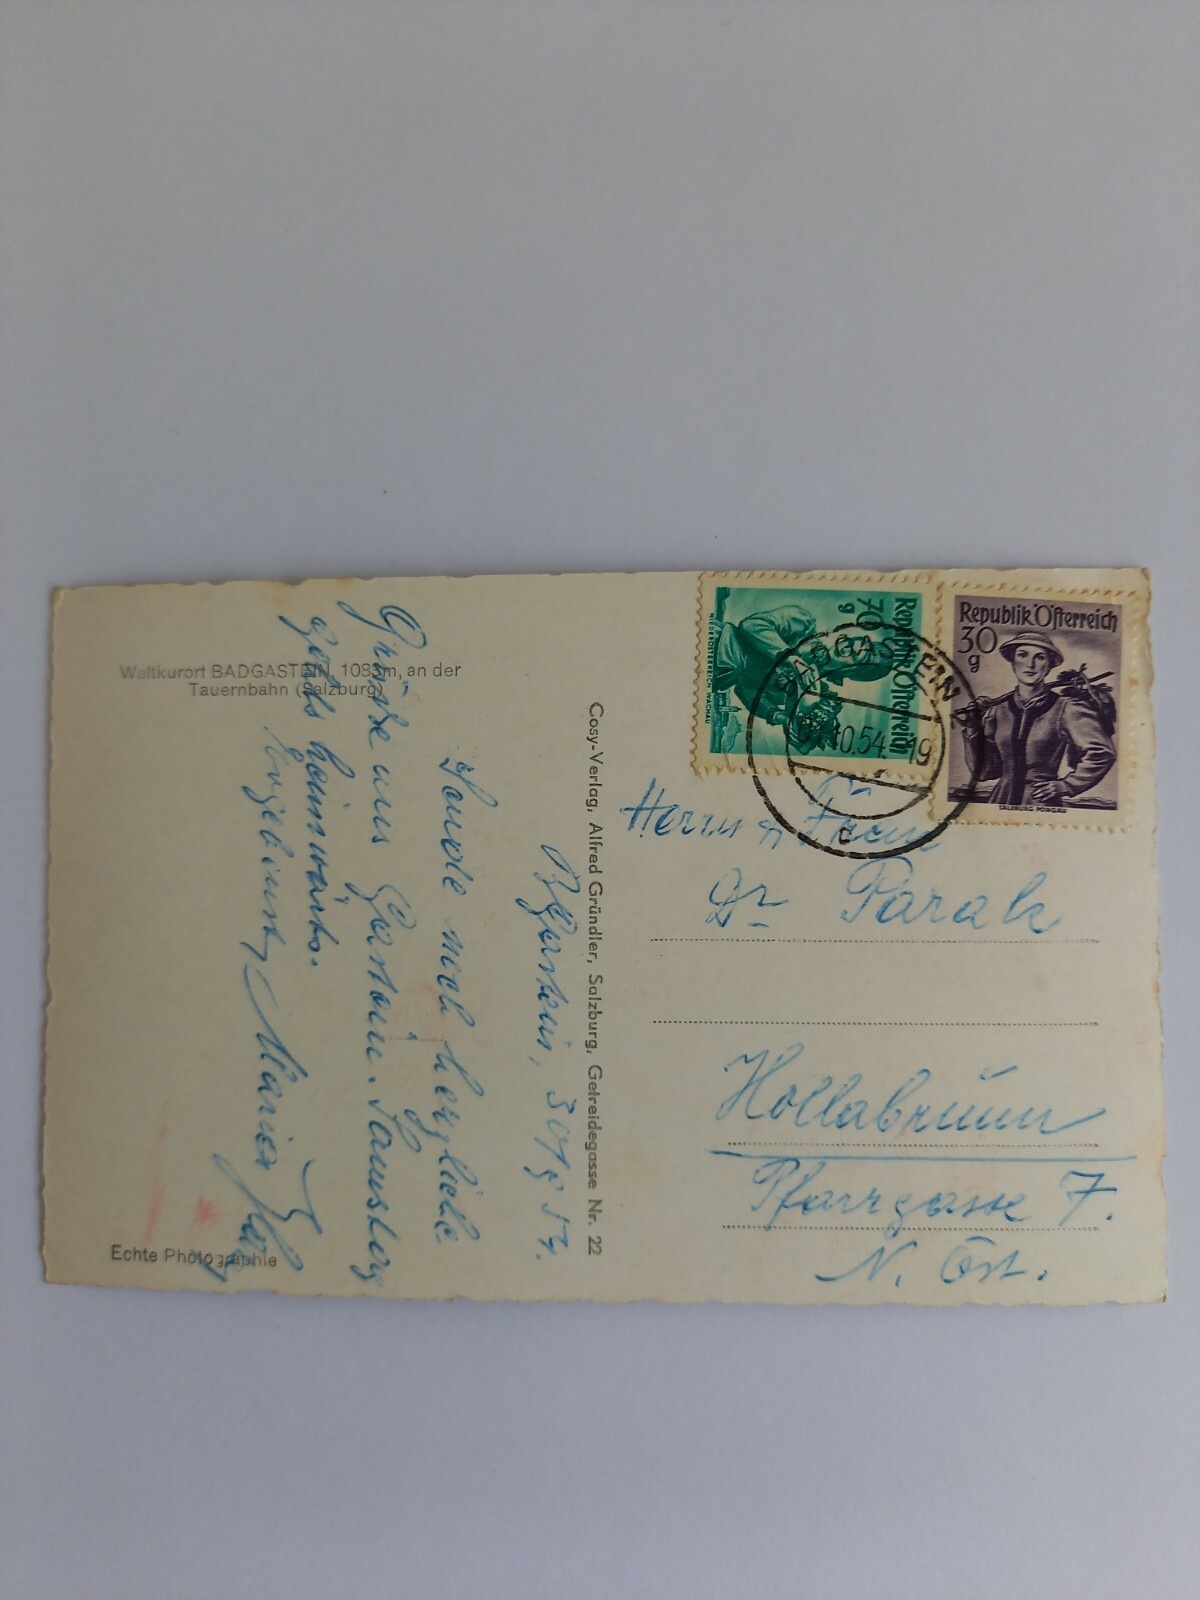 Weltkurort BADGASTEIN, 1083m, an der
Tauernbahn (Salzburg)
Bgastein, 30/9 54.
Sende noch herzliche
Grüße aus Gastein. Samstag
geht's heimwärts.
Maria
Echte Photographie
Cosy-Verlag, Alfred Gründler, Salzburg, Getreidegasse Nr. 22
Republik Österreich
70 g
NIEDERÖSTERREICH, WACHAU
Republik Österreich
30
g
SALZBURG PONGAU
BADGASTEIN 2
10.54 19
c
Herrn u Frau
Dr Parak
Hollabrunn
Pfarrgasse 7.
N. Öst.